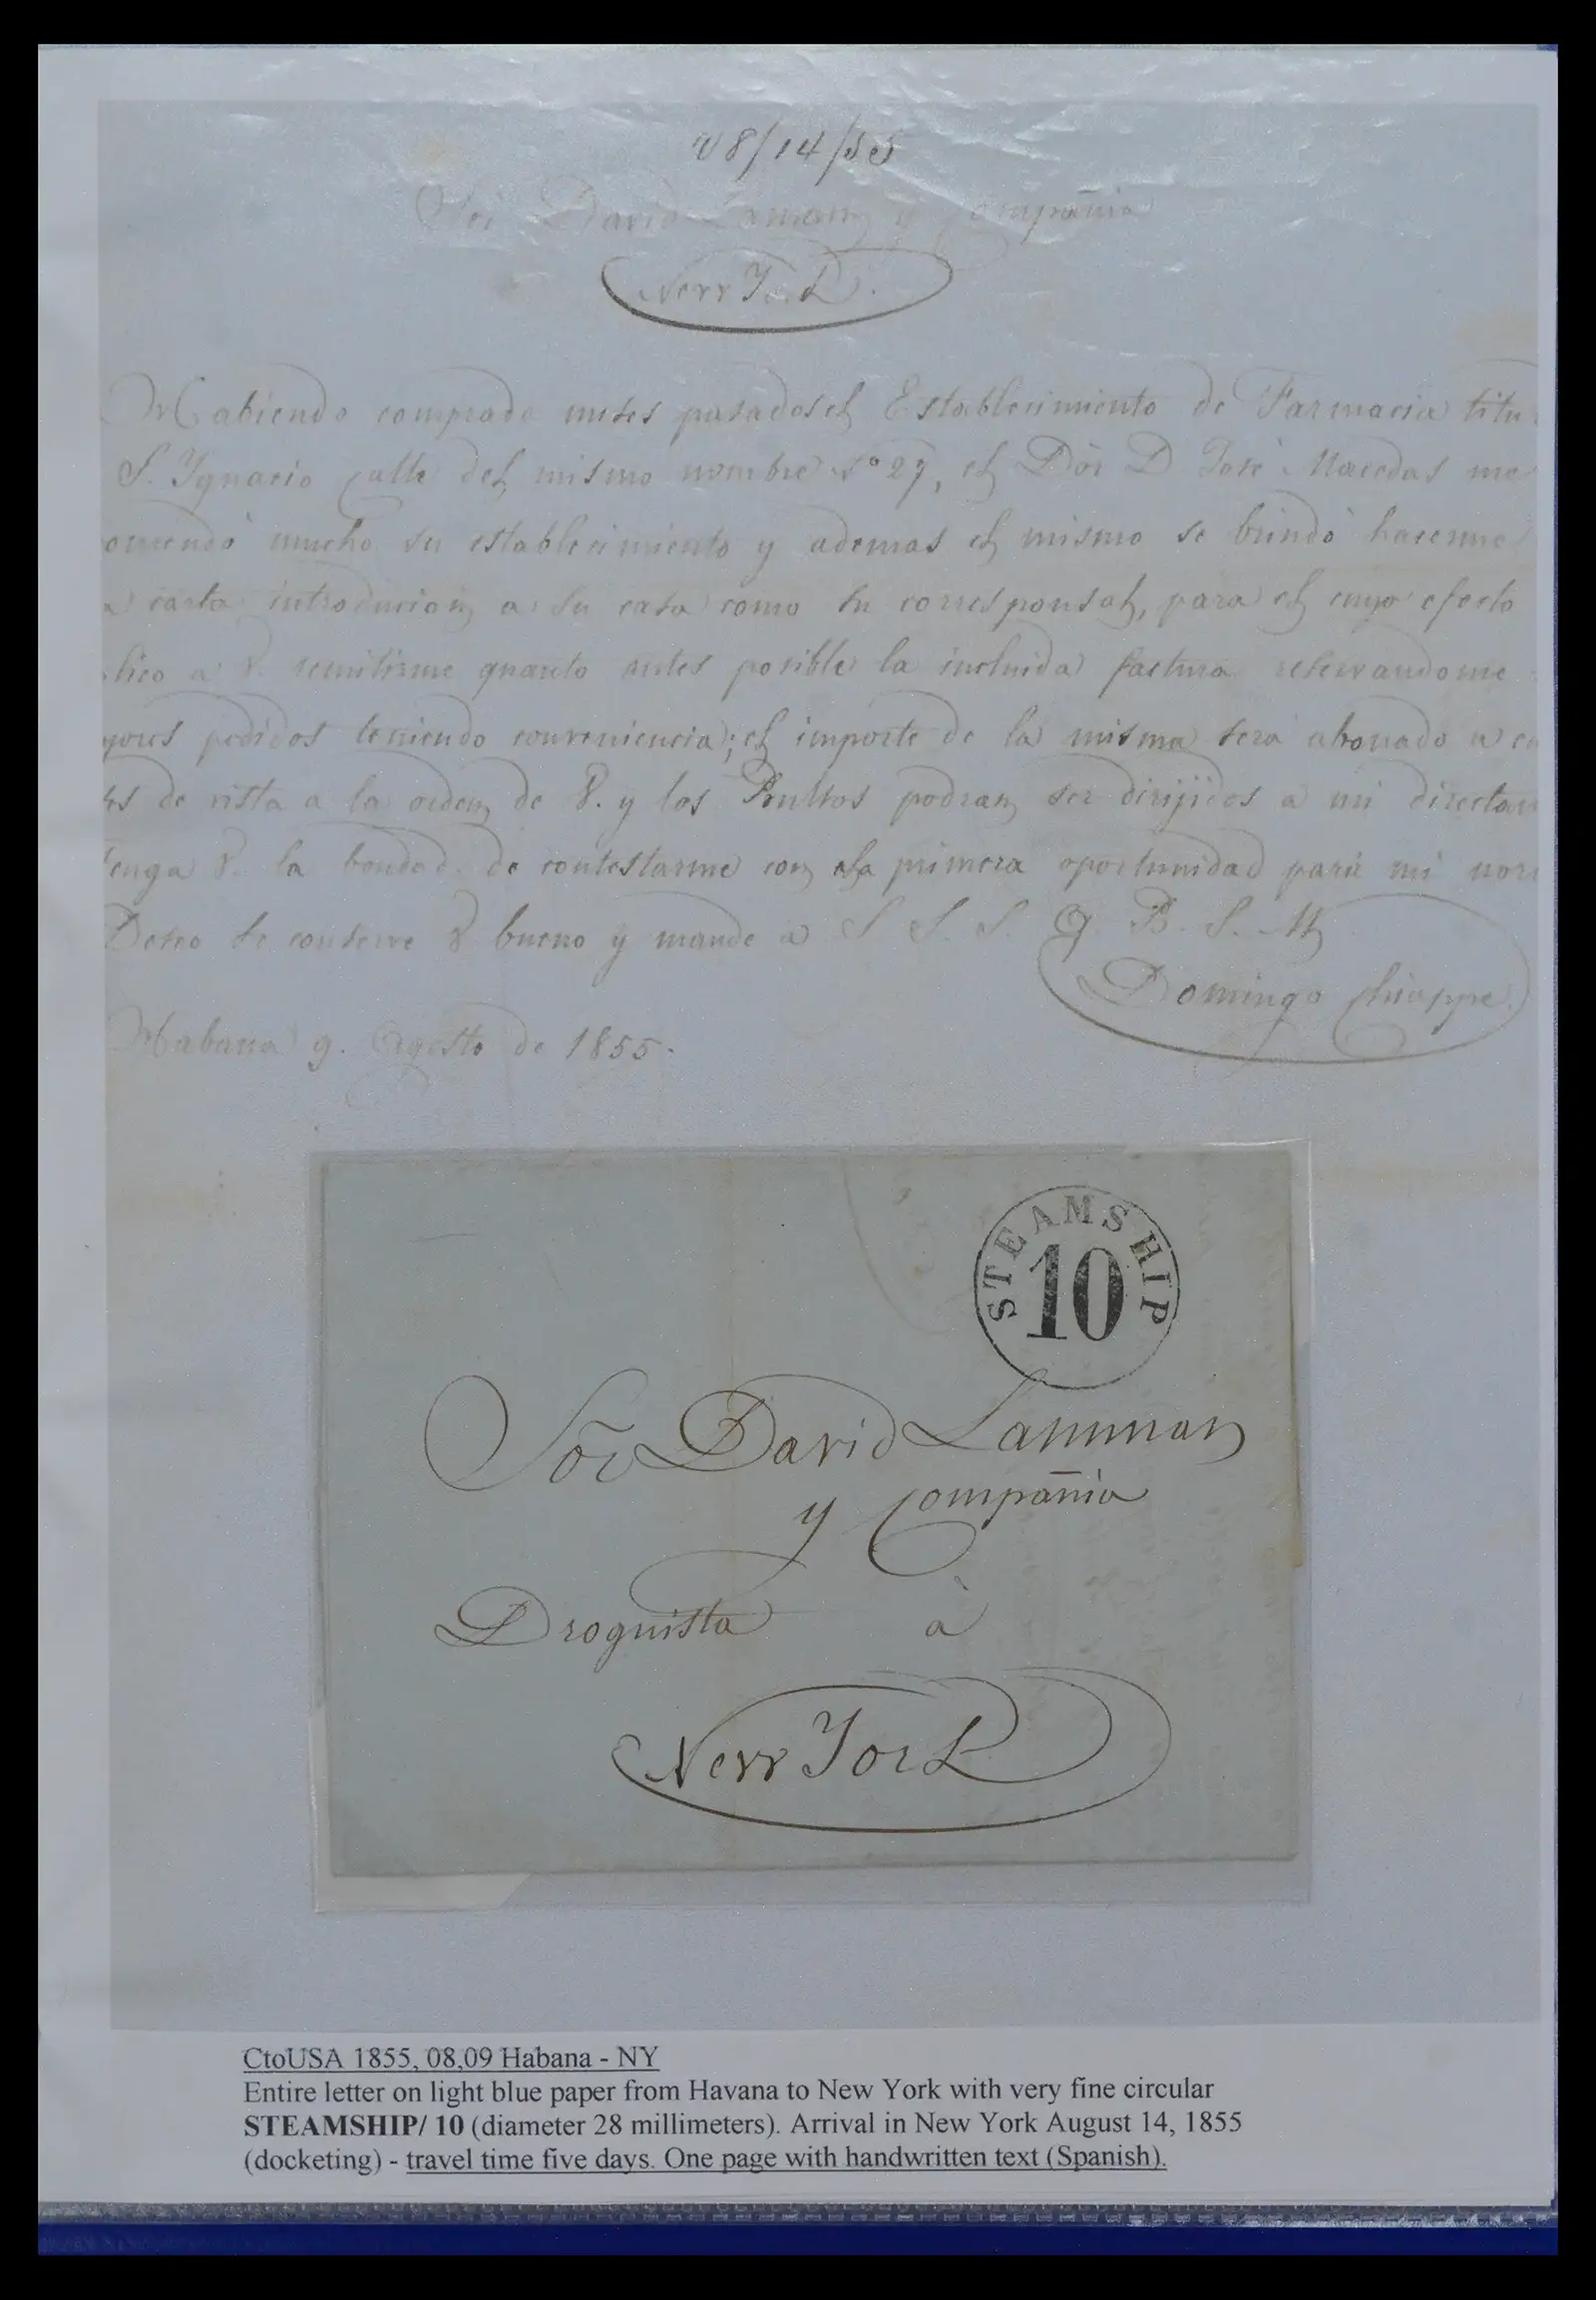 8/14/55
Sõr David Lanman y Compañia
New York.
Habiendo comprado meses pasados el Establecimiento de Farmacia titu
S. Ygnacio Calle del mismo nombre Nº 27, el Dör D José Macedas me
omendò mucho su establecimiento y ademas el mismo se brindò hacerme
a carta introducion a su casa como su corresponsal, para el cuyo efecto
lico a V. remitirme quanto antes posible la incluida factura reservandome
yores pedidos teniendo conveniencia; el importe de la misma sera abonado a
de vista a la orden de V. y los Bultos podran ser dirijidos a mi
enga V. la bondad de contestarme con la primera oportunidad para mi
Deseo se conserve V bueno y mande a S S. S. Q. B. S. M
Domingo Chiappe
Habana 9. Agosto de 1855.
STEAMSHIP
10
Sõr David Lanman
y Compañia
Droguista à
New York
CtoUSA 1855, 08,09 Habana - NY
Entire letter on light blue paper from Havana to New York with very fine circular
STEAMSHIP/ 10 (diameter 28 millimeters). Arrival in New York August 14, 1855
(docketing) - travel time five days. One page with handwritten text (Spanish).